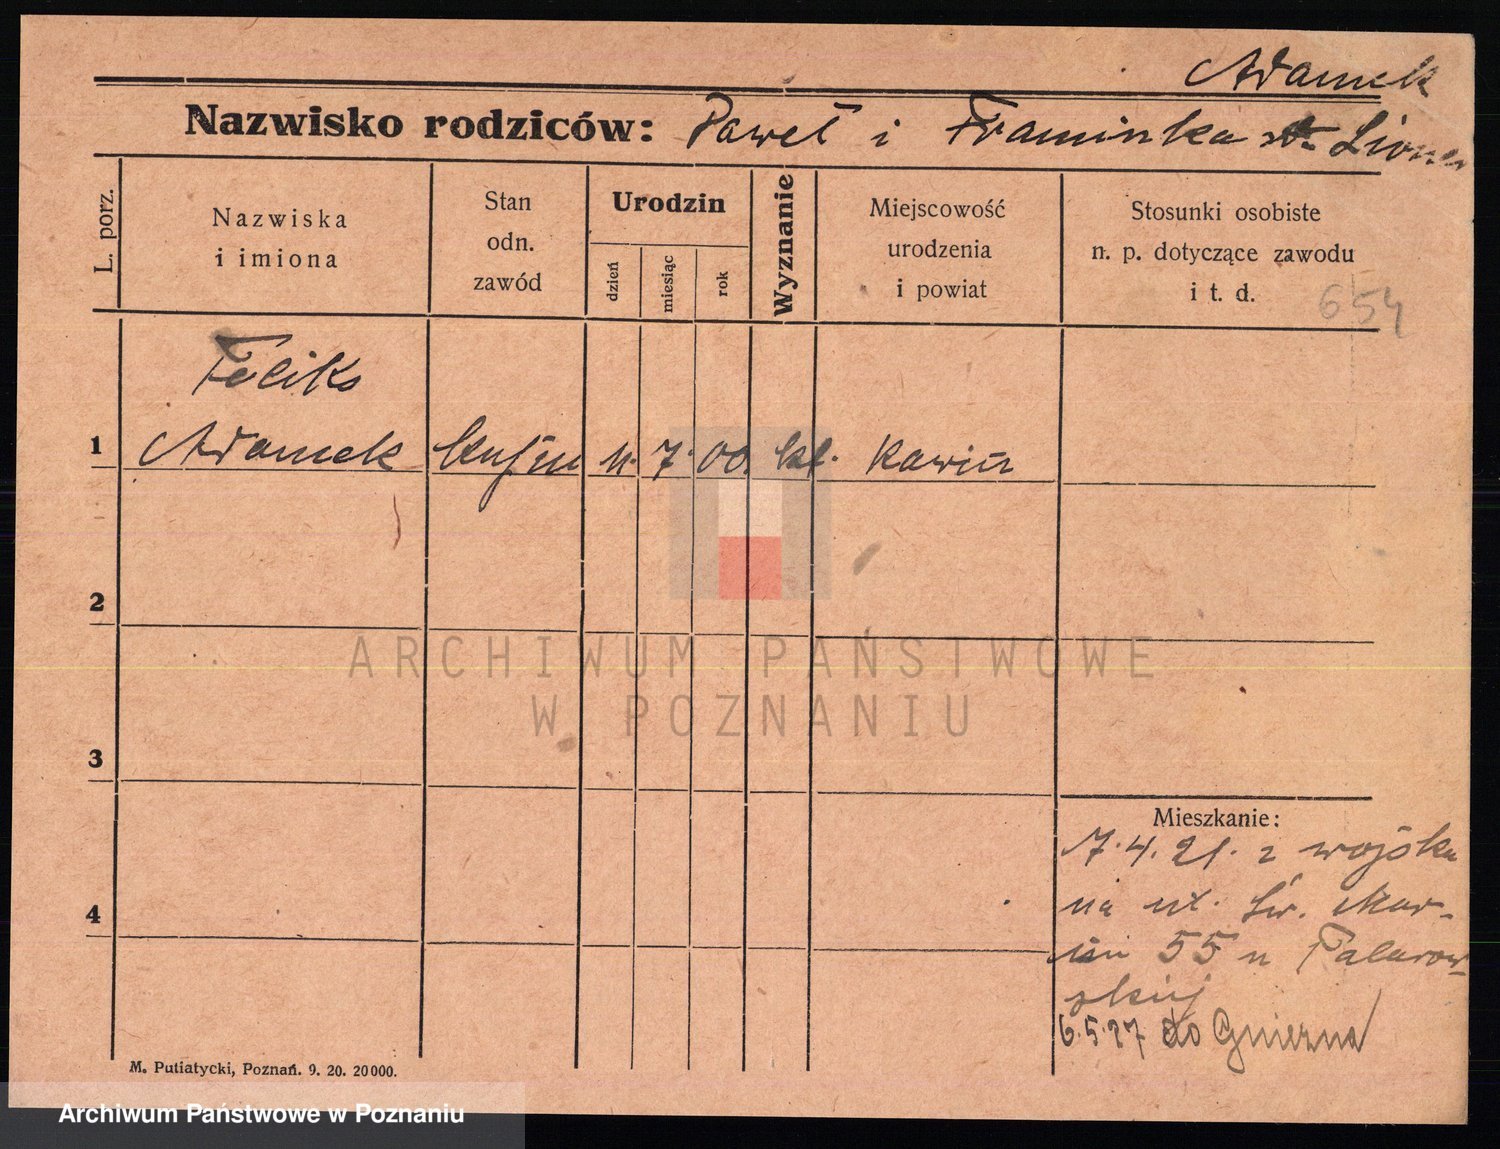 Adamek
Nazwisko rodziców: Paweł i
L. porz.
Nazwiska
i imiona
Stan
odn.
zawód
Urodzin
dzień
miesiąc
rok
Wyznanie
Miejscowość
urodzenia
i powiat
Stosunki osobiste
n. p. dotyczące zawodu
i t. d.
654
Feliks
1 Adamek 11. 7. 00. kt.
2
3
4
ARCHIWUM PAŃSTWOWE
W POZNANIU
Mieszkanie:
7.4.21. z wojska
na ul. Św. Mar-
cin 55 u
skiej
6.5.27 do Gniezna
M. Putiatycki, Poznań. 9. 20. 20000.
Archiwum Państwowe w Poznaniu